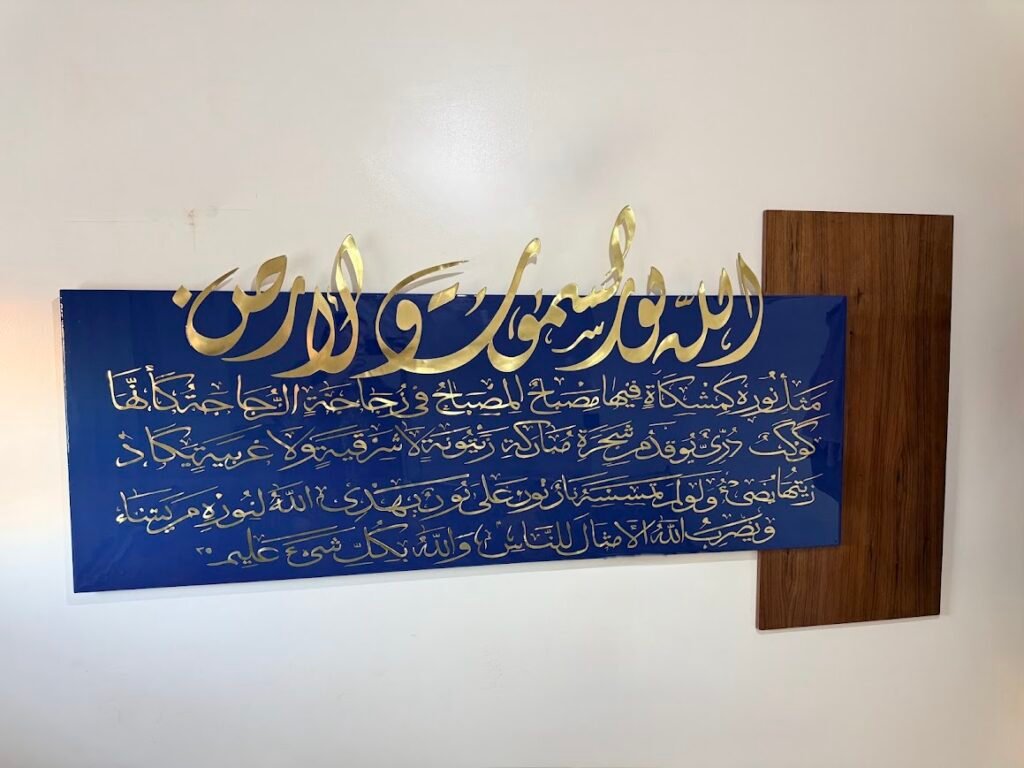 الله نور السموت والارض
مثل نوره كمشكاة فيها مصباح المصباح في زجاجة الزجاجة كأنها
كوكب دري يوقد من شجرة مباركة زيتونة لا شرقية ولا غربية يكاد
زيتها يضيء ولو لم تمسسه نار نور على نور يهدي الله لنوره من يشاء
ويضرب الله الامثال للناس والله بكل شيء عليم ٣٥